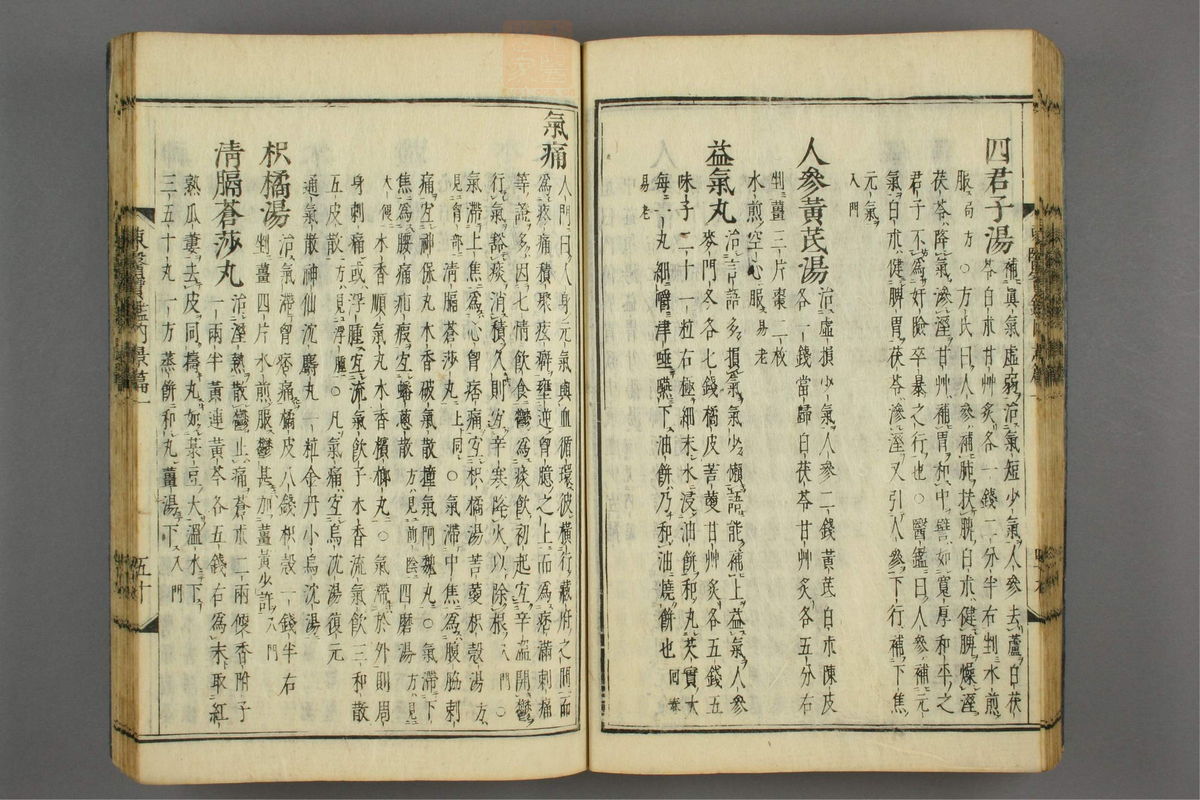 四君子湯 補眞氣虛弱治氣短少氣人參去蘆白茯
苓白朮甘艸炙各一錢二分半右剉水煎
服局方○方氏曰人參補肺扶脾白朮健脾燥溼
茯苓降氣滲溼甘艸補胃和中譬如寬厚和平之
君子不爲奸險卒暴之行也○醫鑑曰人參補元
氣白朮健脾胃茯苓滲溼又引人參下行補下焦
元氣
入門
人參黃芪湯 治虛損少氣人參二錢黃芪白朮陳皮
各一錢當歸白茯苓甘艸炙各五分右
剉薑三片棗二枚
水煎空心服易老
益氣丸 治言語多損氣氣少懶語能補上益氣人參
麥門冬各七錢橘皮苦莄甘艸炙各五錢五
味子二十一粒右極細末水浸油餅和丸芡實大
每一丸細嚼津唾嚥下油餅乃和油燒餅也 回春
易老
氣痛 入門曰人身元氣與血循環彼橫行藏府之間而
爲疼痛積聚痃癖壅逆胷臆之上而爲痞滿刺痛
等證多因七情飮食鬱爲痰飮初起宜辛溫開鬱
行氣豁痰消積久則宜辛寒降火以除根入門○
氣滯上焦爲心胷痞痛宜枳橘湯苦莄枳殼湯方
見胷部淸膈蒼莎丸上同○氣滯中焦爲腹脇刺
痛宜神保丸木香破氣散撞氣阿魏丸○氣滯下
焦爲腰痛疝瘕宜蟠蔥散方見前陰四磨湯方見
大便木香順氣丸木香檳榔丸○氣滯於外則周
身刺痛或浮腫宜流氣飮子木香流氣飮三和散
五皮散方見浮腫○凡氣痛宜烏沈湯復元
通氣散神仙沈麝丸一粒金丹小烏沈湯
枳橘湯 治氣滯胷痞痛橘皮八錢枳殼一錢半右
剉薑四片水煎服鬱甚加薑黃少許入門
淸膈蒼莎丸 治溼熱散鬱止痛蒼朮二兩便香附子
一兩半黃連黃芩各五錢右爲末取紅
熟瓜蔞去皮同擣丸如菉豆大溫水下
三五十丸一方蒸餠和丸薑湯下入門
東醫寶鑑內景篇一
五十